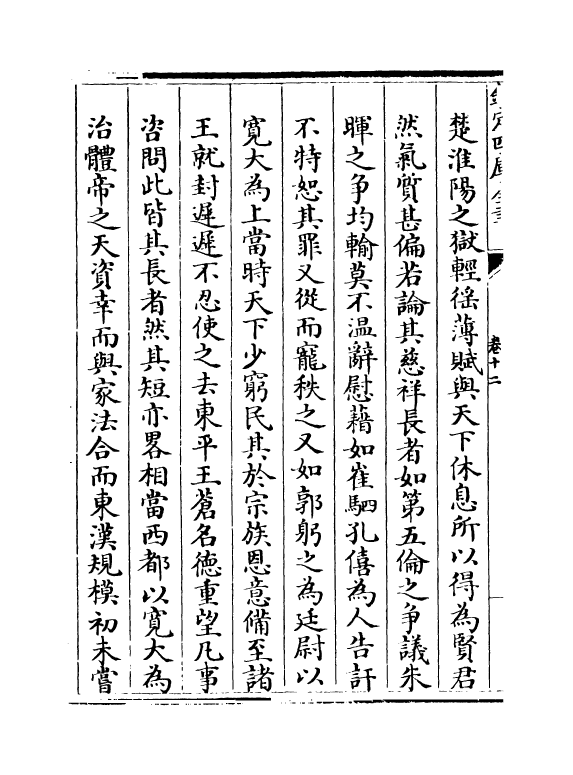 欽定四庫全書
卷十二
楚淮陽之獄輕徭薄賦與天下休息所以得為賢君
然氣質甚偏若論其慈祥長者如第五倫之争議朱
暉之争均輸莫不温辭慰藉如崔駰孔僖為人告訐
不特恕其罪又從而寵秩之又如郭躬之為廷尉以
寛大為上當時天下少窮民其於宗族恩意備至諸
王就封遲遲不忍使之去東平王蒼名德重望凡事
咨問此皆其長者然其短亦畧相當西都以寛大為
治體帝之天資幸而與家法合而東漢規模初未嘗